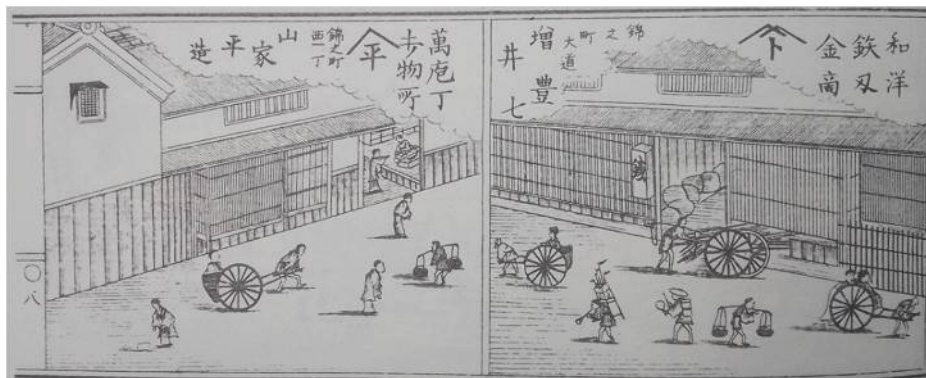 和洋
鉄刄
金商
錦之町
大道
増井豊七
鉄
萬庖丁
物所
平
錦之町
西一丁
山家平造
〇八